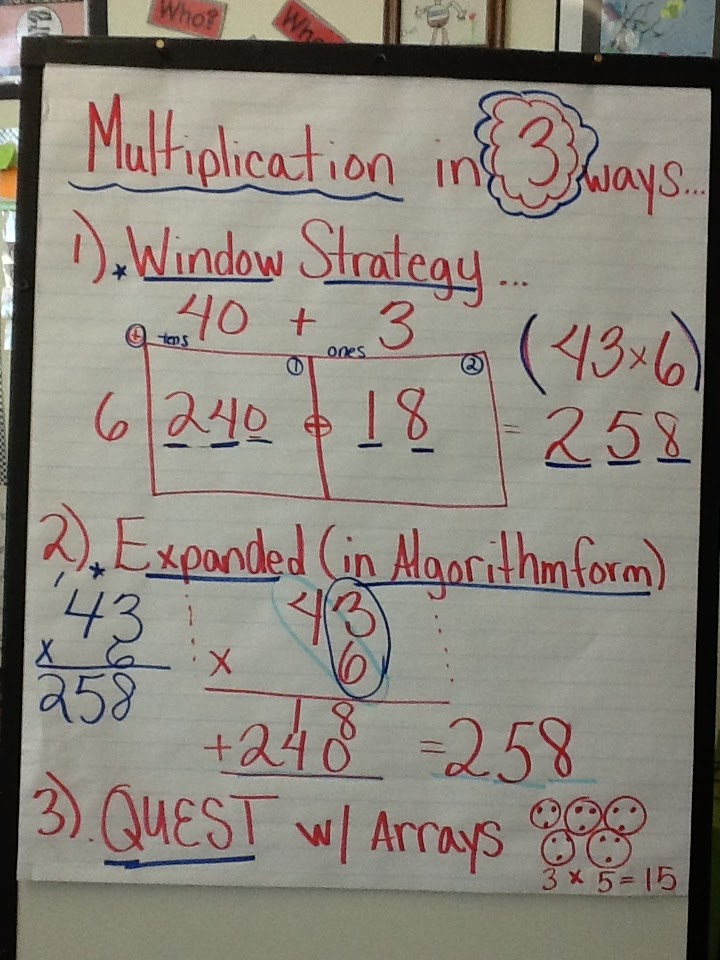 Who?
Who
Multiplication in 3 ways...
1). * Window Strategy...
40 + 3
+ tens 1 ones 2
(43×6)
6 240 + 18 = 258
2). * Expanded (in Algorithm form)
1
43
x 6
258
43
x 6
18
+240 = 258
3). QUEST w/ Arrays
3 x 5 = 15